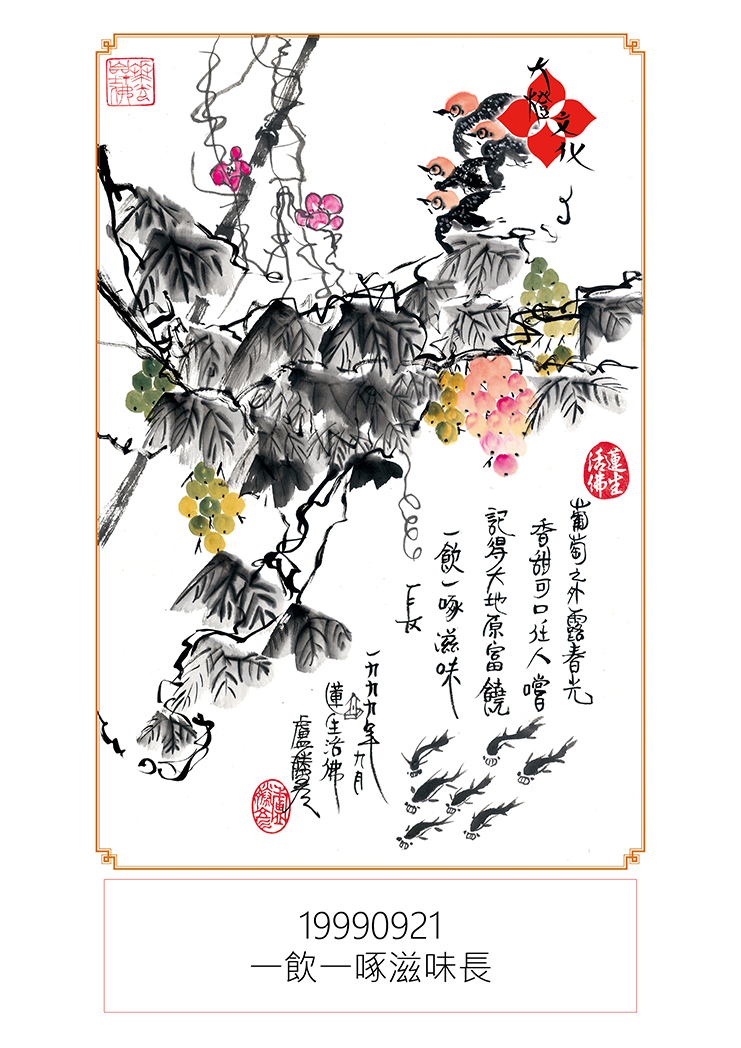 華光雷佛
大燈文化
蓮生活佛
葡萄之外露春光
香甜可口任人嚐
記得大地原富饒
一飲一啄滋味
長
一九九九年九月
蓮生活佛
盧勝彥
盧勝彥
19990921
一飲一啄滋味長